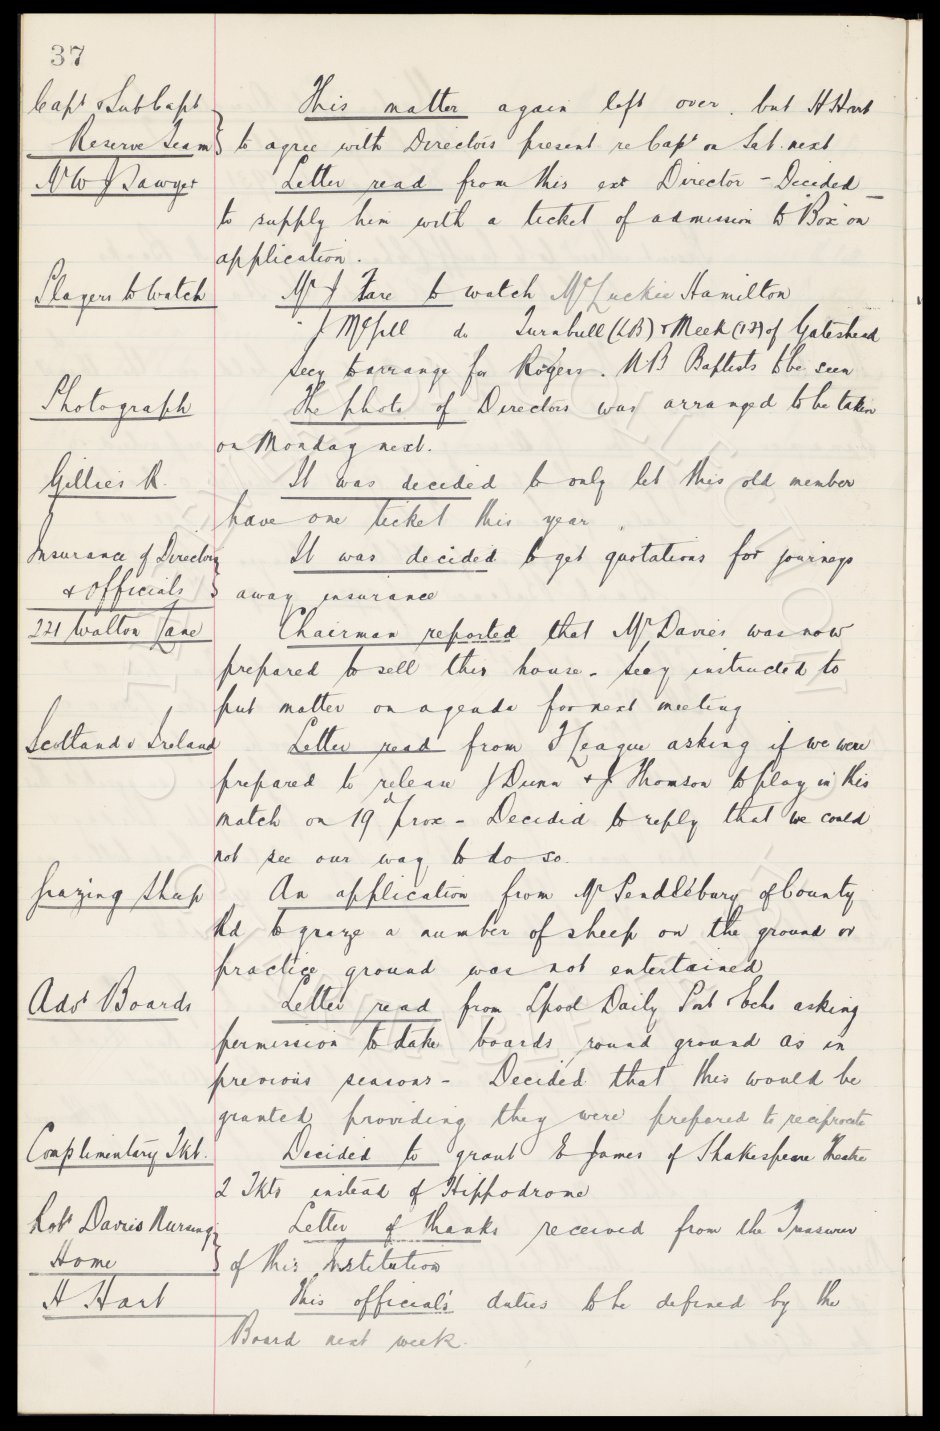 37
Capt & Sub Capt This matter again left over. but H Hart
Reserve Team to agree with Directors present re Capt on Sat. next
Mr W J Sawyer Letter read from this ex Director - Decided
to supply him with a ticket of admission to "Box" on
application.
Players to Watch Mr J Tare to watch McLuckie Hamilton
" J McGill do Turnbull (LB) & Meek (IR) of Gateshead
Secy to arrange for Rogers. N.B Baptists to be seen
Photograph The photo of Directors was arranged to be taken
on Monday next.
Gillies R. It was decided to only let this old member
have one ticket this year.
Insurance of Directors It was decided to get quotations for journeys
& Officials away insurance
221 Walton Lane Chairman reported that Mr Davies was now
prepared to sell this house - Secy instructed to
put matter on agenda for next meeting
Scotland v Ireland Letter read from I League asking if we were
prepared to release J Dunn & J Thomson to play in this
match on 19th prox - Decided to reply that we could
not see our way to do so.
Grazing Sheep An application from Mr Pendlebury of County
Rd to graze a number of sheep on the ground or
practice ground was not entertained
Advt Boards Letter read from Lpool Daily Post & Echo asking
permission to take boards round ground as in
previous seasons - Decided that this would be
granted providing they were prepared to reciprocate
Complimentary Tkt. Decided to grant E James of Shakespeare Theatre
2 Tkts instead of Hippodrome
Robt Davies Nursing Letter of thanks received from the Treasurer
Home of this Institution
H Hart This official's duties to be defined by the
Board next week.